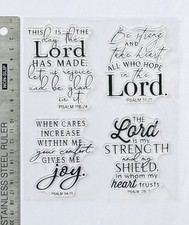 THIS IS THE
day the
Lord
HAS MADE;
let us rejoice
and be glad
in it.
PSALM 118:24
Be strong
and
take heart
ALL WHO HOPE
in the
Lord.
PSALM 31:24
WHEN CARES
INCREASE
WITHIN ME
your comfort
GIVES ME
joy.
PSALM 94:19
THE
Lord
is my
STRENGTH
and my
SHIELD,
in whom my
heart trusts.
PSALM 28:7
STAINLESS STEEL RULER